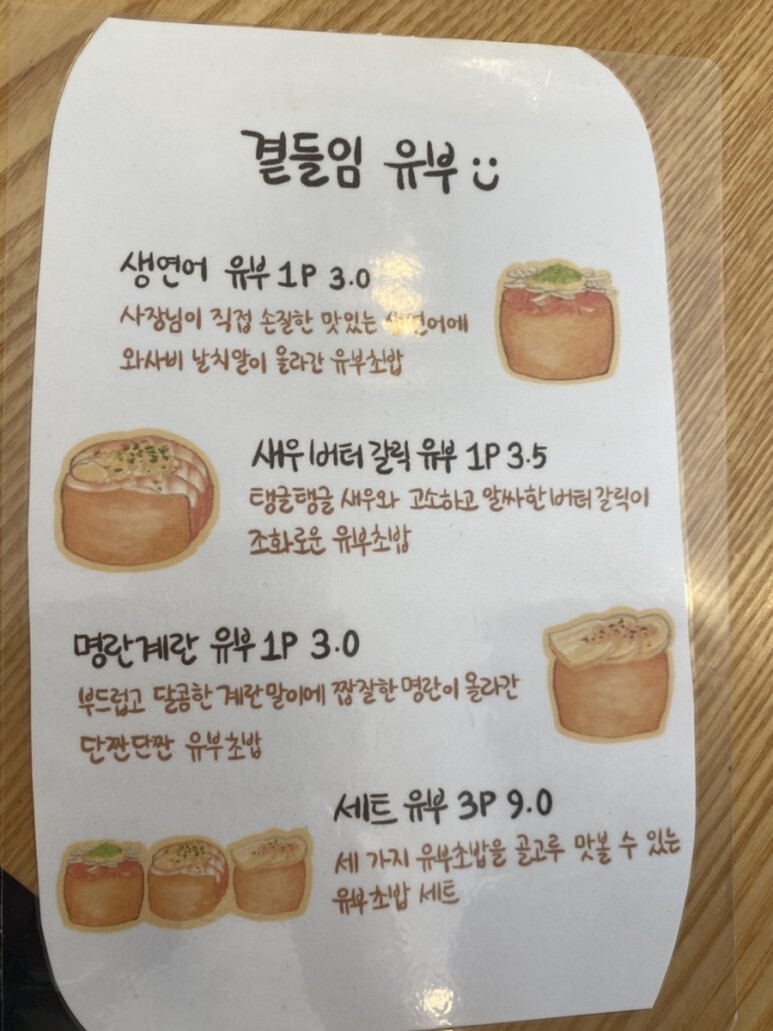 곁들임 유부 :)
생연어 유부 1P 3.0
사장님이 직접 손질한 맛있는 생연어에
와사비 날치알이 올라간 유부초밥
새우버터갈릭 유부 1P 3.5
탱글탱글 새우와 고소하고 알싸한 버터갈릭이
조화로운 유부초밥
명란계란 유부 1P 3.0
부드럽고 달콤한 계란말이에 짭잘한 명란이 올라간
단짠단짠 유부초밥
세트 유부 3P 9.0
세 가지 유부초밥을 골고루 맛볼 수 있는
유부초밥 세트